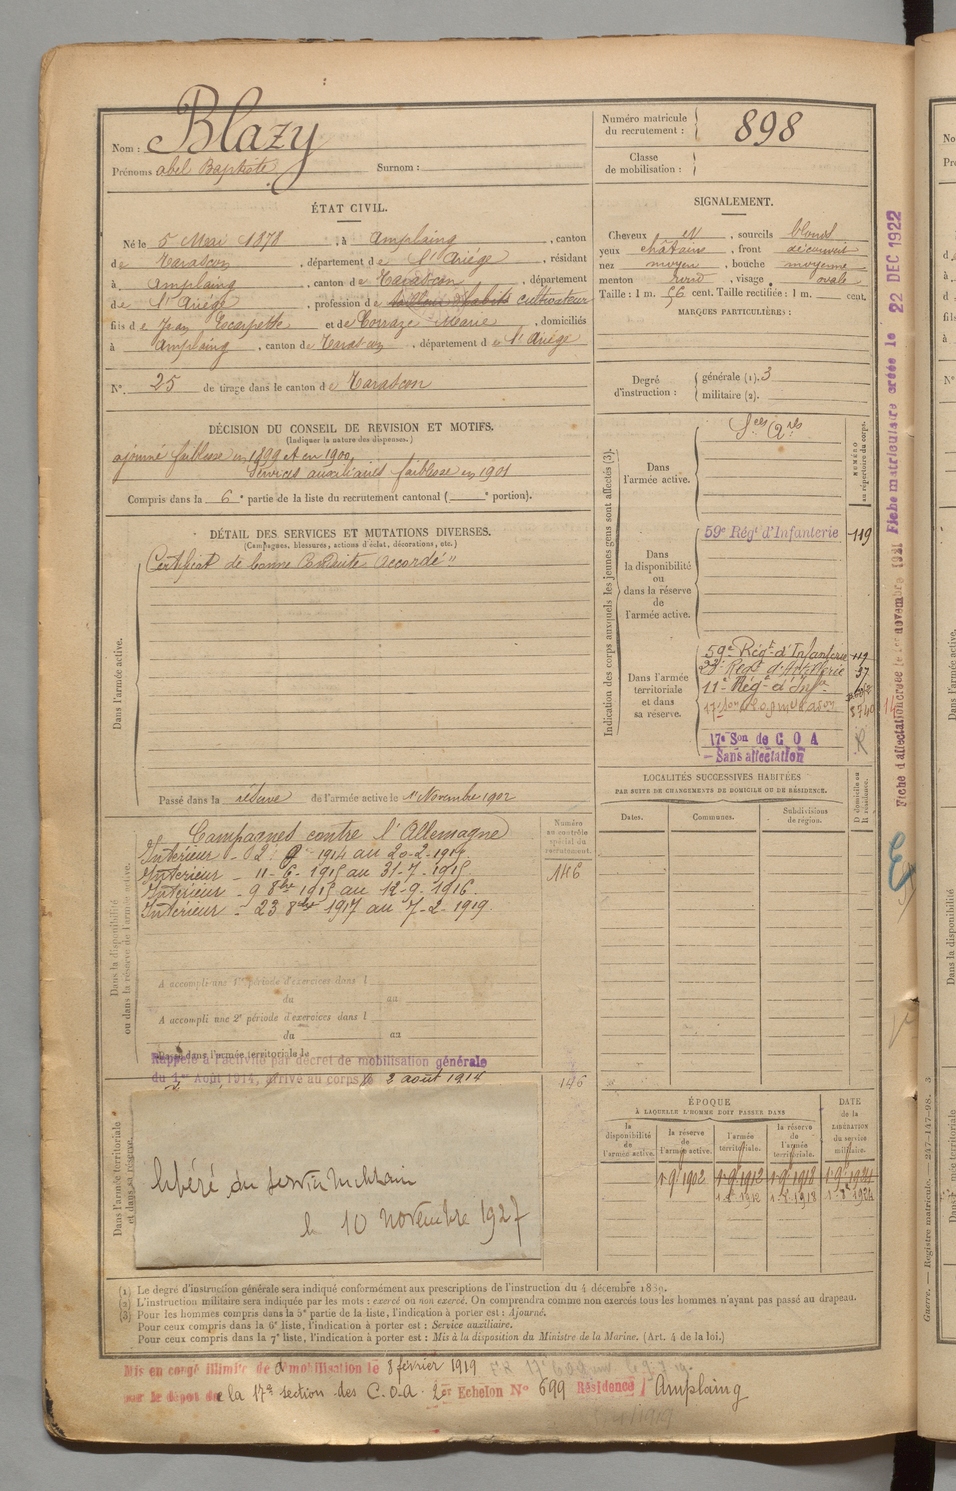 Nom : Blazy
Prénoms abel Baptiste Surnom :
Numéro matricule du recrutement : 898
Classe de mobilisation :
ÉTAT CIVIL.
Né le 5 Mai 1878, à Amplaing, canton
de Tarascon, département de l'Ariége, résidant
à Amplaing, canton de Tarascon, département
de l'Ariége, profession de cultivateur
fils de Jean Escarpette et de Corraze Marie, domiciliés
à Amplaing, canton de Tarascon, département de l'Ariége
N° 25 de tirage dans le canton de Tarascon
SIGNALEMENT.
Cheveux et, sourcils blond
yeux châtains, front découvert
nez moyen, bouche moyenne
menton rond, visage ovale
Taille : 1 m. 56 cent. Taille rectifiée : 1 m. cent.
MARQUES PARTICULIÈRES :
Degré d'instruction : générale (1). 3
militaire (2).
DÉCISION DU CONSEIL DE REVISION ET MOTIFS.
(Indiquer la nature des dispenses.)
ajourné faiblesse en 1899 et en 1900,
Services auxiliaires faiblesse en 1901
Compris dans la 6e partie de la liste du recrutement cantonal ( e portion).
DÉTAIL DES SERVICES ET MUTATIONS DIVERSES.
(Campagnes, blessures, actions d'éclat, décorations, etc.)
Dans l'armée active.
Certificat de bonne Conduite "accordé"
Passé dans la réserve de l'armée active le 1er Novembre 1902
Dans la disponibilité ou dans la réserve de l'armée active.
Campagnes contre l'Allemagne
Intérieur - 2 1914 au 20-2-1915
Intérieur - 11-6-1915 au 31-7-1915
Intérieur - 9 8bre 1915 au 12-9-1916.
Intérieur - 23 8bre 1917 au 7-2-1919
Numéro au contrôle spécial du recrutement.
146
A accompli une 1re période d'exercices dans l
du au
A accompli une 2e période d'exercices dans l
du au
Passé dans l'armée territoriale le
Rappelé à l'activité par décret de mobilisation générale
du 1er Août 1914, arrivé au corps le 3 août 1914
146
Dans l'armée territoriale et dans sa réserve.
libéré du service militaire
le 10 novembre 1927
Indication des corps auxquels les jeunes gens sont affectés (3).
NUMÉRO au répertoire du corps.
Dans l'armée active.
Dans la disponibilité ou dans la réserve de l'armée active.
59e Régt d'Infanterie 119
Dans l'armée territoriale et dans sa réserve.
59e Régt d'Infanterie 119
Régt d'Artillerie 37
11e Régt d'Inf.
17e Son de C O A
Sans affectation
LOCALITÉS SUCCESSIVES HABITÉES
PAR SUITE DE CHANGEMENTS DE DOMICILE OU DE RÉSIDENCE.
D domicile ou R résidence.
Dates. Communes. Subdivisions de région.
ÉPOQUE
À LAQUELLE L'HOMME DOIT PASSER DANS
DATE de la LIBÉRATION du service militaire.
la disponibilité de l'armée active.
la réserve de l'armée active.
l'armée territoriale.
la réserve de l'armée territoriale.
1 9e 1902 1 9e 1912 1 9e 1918 1 9e 1924
(1) Le degré d'instruction générale sera indiqué conformément aux prescriptions de l'instruction du 4 décembre 1889.
(2) L'instruction militaire sera indiquée par les mots : exercé ou non exercé. On comprendra comme non exercés tous les hommes n'ayant pas passé au drapeau.
(3) Pour les hommes compris dans la 5e partie de la liste, l'indication à porter est : Ajourné.
Pour ceux compris dans la 6e liste, l'indication à porter est : Service auxiliaire.
Pour ceux compris dans la 7e liste, l'indication à porter est : Mis à la disposition du Ministre de la Marine. (Art. 4 de la loi.)
Mis en congé illimité de démobilisation le 8 février 1919
par le dépôt de la 17e section des C.O.A. 2er Echelon No 699 Résidence Amplaing
Fiche d'affectation créée le 1er novembre 1921 Fiche matriculaire créée le 22 DEC 1922
Guerre. — Registre matricule. — 247-147-98. 3